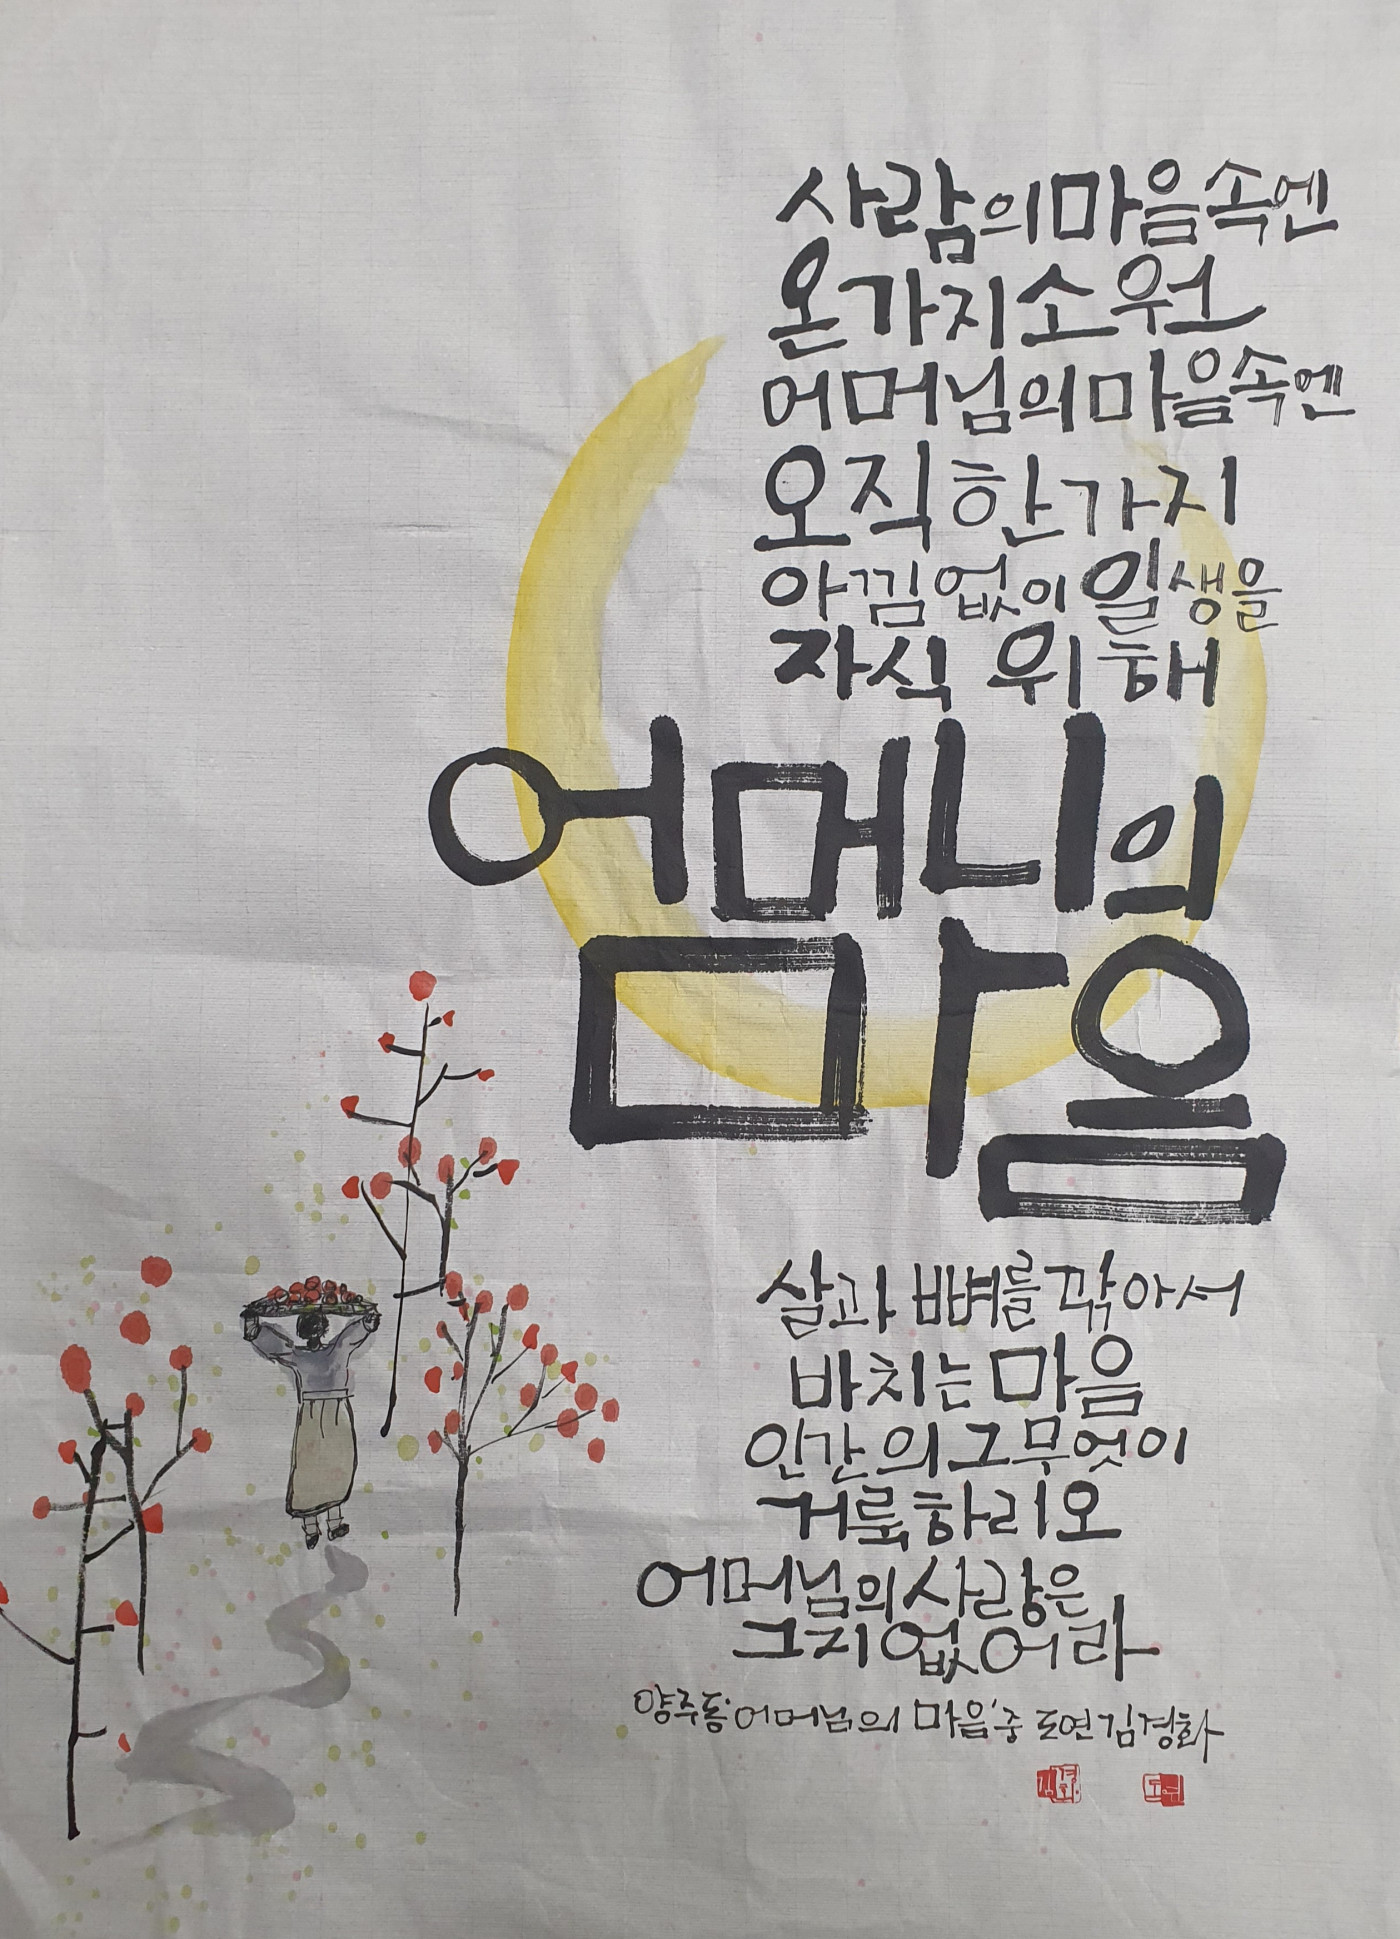 사람의 마음속엔
온가지 소원
어머님의 마음속엔
오직 한가지
아낌없이 일생을
자식 위해
어머니의
마음
살과 뼈를 깎아서
바치는 마음
인간의 그 무엇이
거룩하리오
어머님의 사랑은
그지없어라
양주동 '어머님의 마음' 중 도연 김경화
김경화 도연